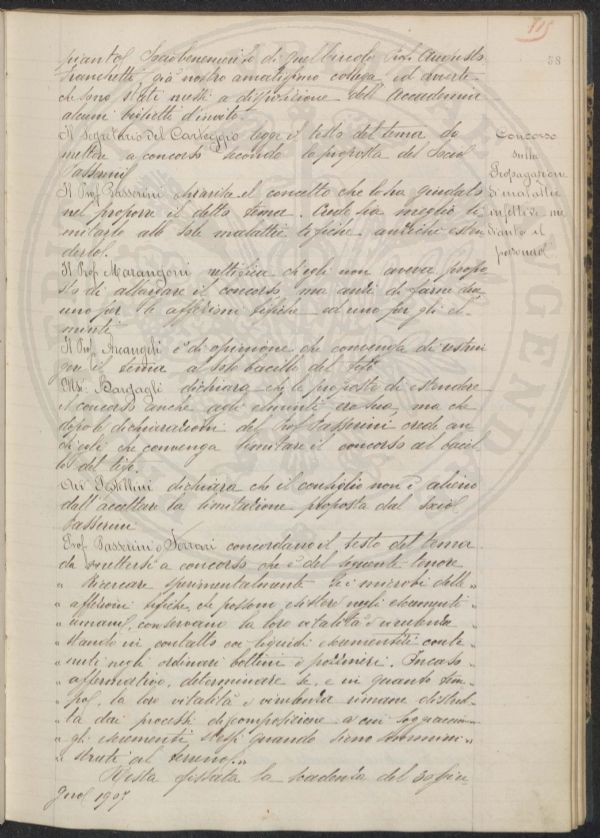 105
58
piante, Socio benemerito di quel Circolo Prof. Augusto
Franchetti già nostro amatissimo collega ed avverte
che sono stati messi a disposizione dell'Accademia
alcuni biglietti d'invito.
Il Segretario del Carteggio legge il testo del tema da
mettere a concorso secondo la proposta del Socio
Passerini
Concorso
sulla
Propagazione
di malattie
infettive me
diante il
Il Prof. Passerini chiarisce il concetto che lo ha guidato
nel proporre il detto tema. Crede sia meglio li
mitarlo alle sole malattie tifiche anziché esten
derlo.
Il Prof. Marangoni rettifica ch'egli non aveva propo
sto di allargare il concorso, ma anzi di farne due
uno per le affezioni tifiche ed uno per gli el-
minti
Il Prof. Arcangeli è di opinione che convenga di restrin
gere il tema al solo bacillo del tifo
Mse. Bargagli dichiara che la proposta di estendere
il concorso anche agli elminti era sua, ma che
dopo le dichiarazioni del Prof Passerini crede an
ch'egli che convenga limitare il concorso al bacil
lo del tifo.
Avv Pestellini dichiara che il consiglio non è alieno
dall'accettare la limitazione proposta dal Socio
Passerini
Prof. Passerini e Ferrari concordano il testo del tema
da mettersi a concorso che è del seguente tenore
„ Ricercare sperimentalmente se i microbi delle „
„ affezioni tifiche, che possono esistere negli escrementi „
„ umani, conservano la loro vitalità e virulenza
„ stando in contatto coi liquidi escrementizi conte „
„ nuti negli ordinari bottini o pozzi neri. In caso „
„ affermativo, determinare se, e in quanto tem- „
„ po, la loro vitalità e virulenza rimane distrut- „
„ ta dai processi di composizione a cui soggiaccion „
„ gli escrementi stessi quando sieno sommini- „
„ strati al terreno. „
Resta fissata la scadenza del 30 giu-
gno 1907